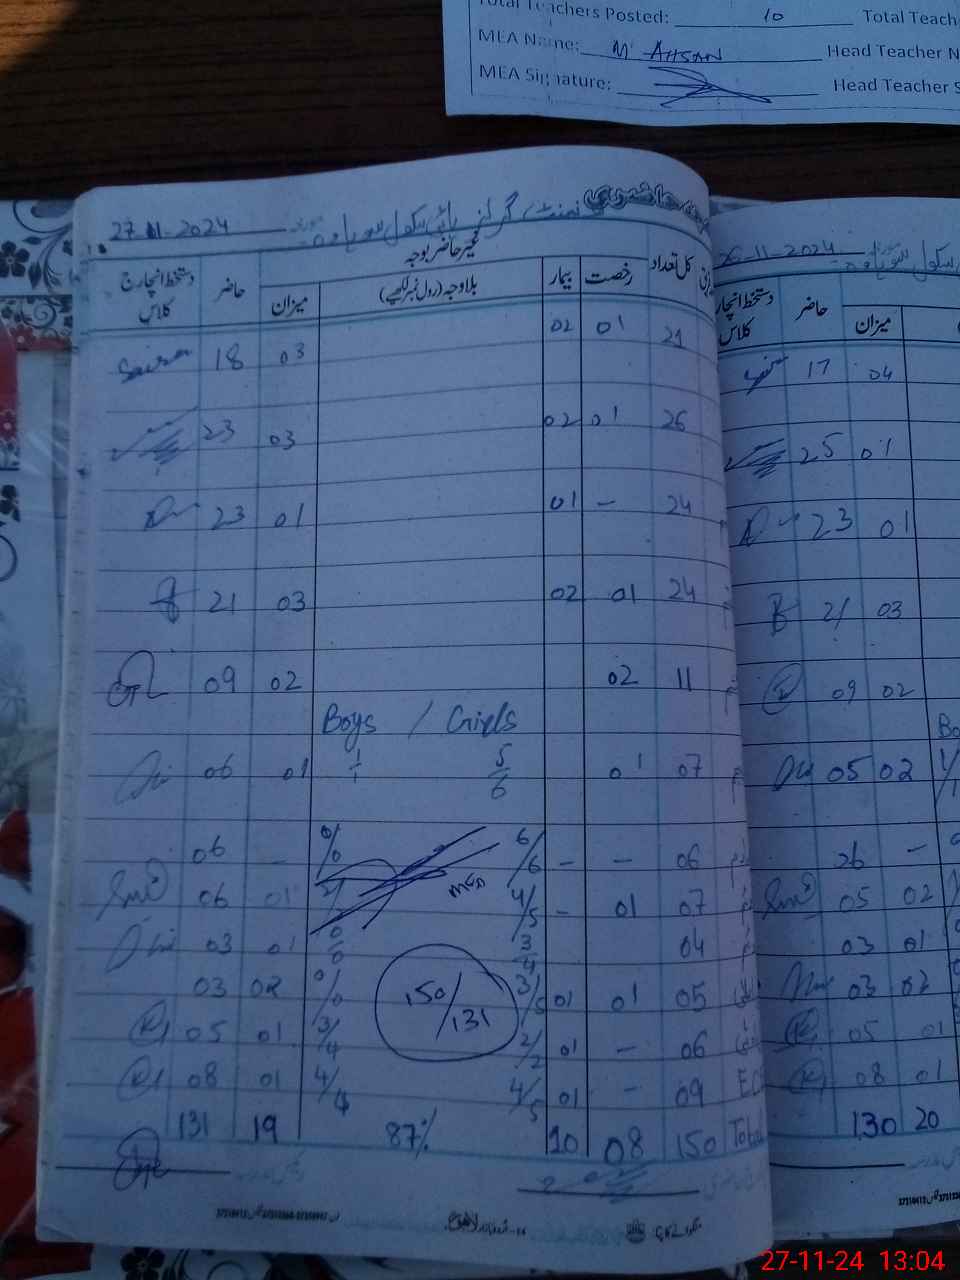 Total Teachers Posted: 10 Total Teach
MEA Name: M AHSAN Head Teacher N
MEA Signature: Head Teacher S
27-11-2024 گرلز ہائی سکول
غیر حاضر بوجہ
دستخط انچارج کلاس حاضر میزان بلاوجہ (رول نمبر لکھیے) بیمار رخصت کل تعداد
18 03 02 01 21
23 03 02 01 26
23 01 01 – 24
21 03 02 01 24
09 02 02 11
Boys / Girls
06 01 1/1 5/6 01 07
06 – 0/0 6/6 – – 06
06 01 4/5 – 01 07
03 01 0/0 3/4 04
03 02 0/0 3/5 01 01 05
05 01 3/4 2/2 01 – 06
08 01 4/4 4/5 01 – 09
MEA
150/131
131 19 87% 10 08 150 Total
26-11-2024 سکول
دستخط انچارج کلاس حاضر میزان
17 04
25 01
23 01
21 03
09 02
Bo
05 02
26 –
05 02
03 01
03 02
05 01
08 01
130 20
27-11-24 13:04